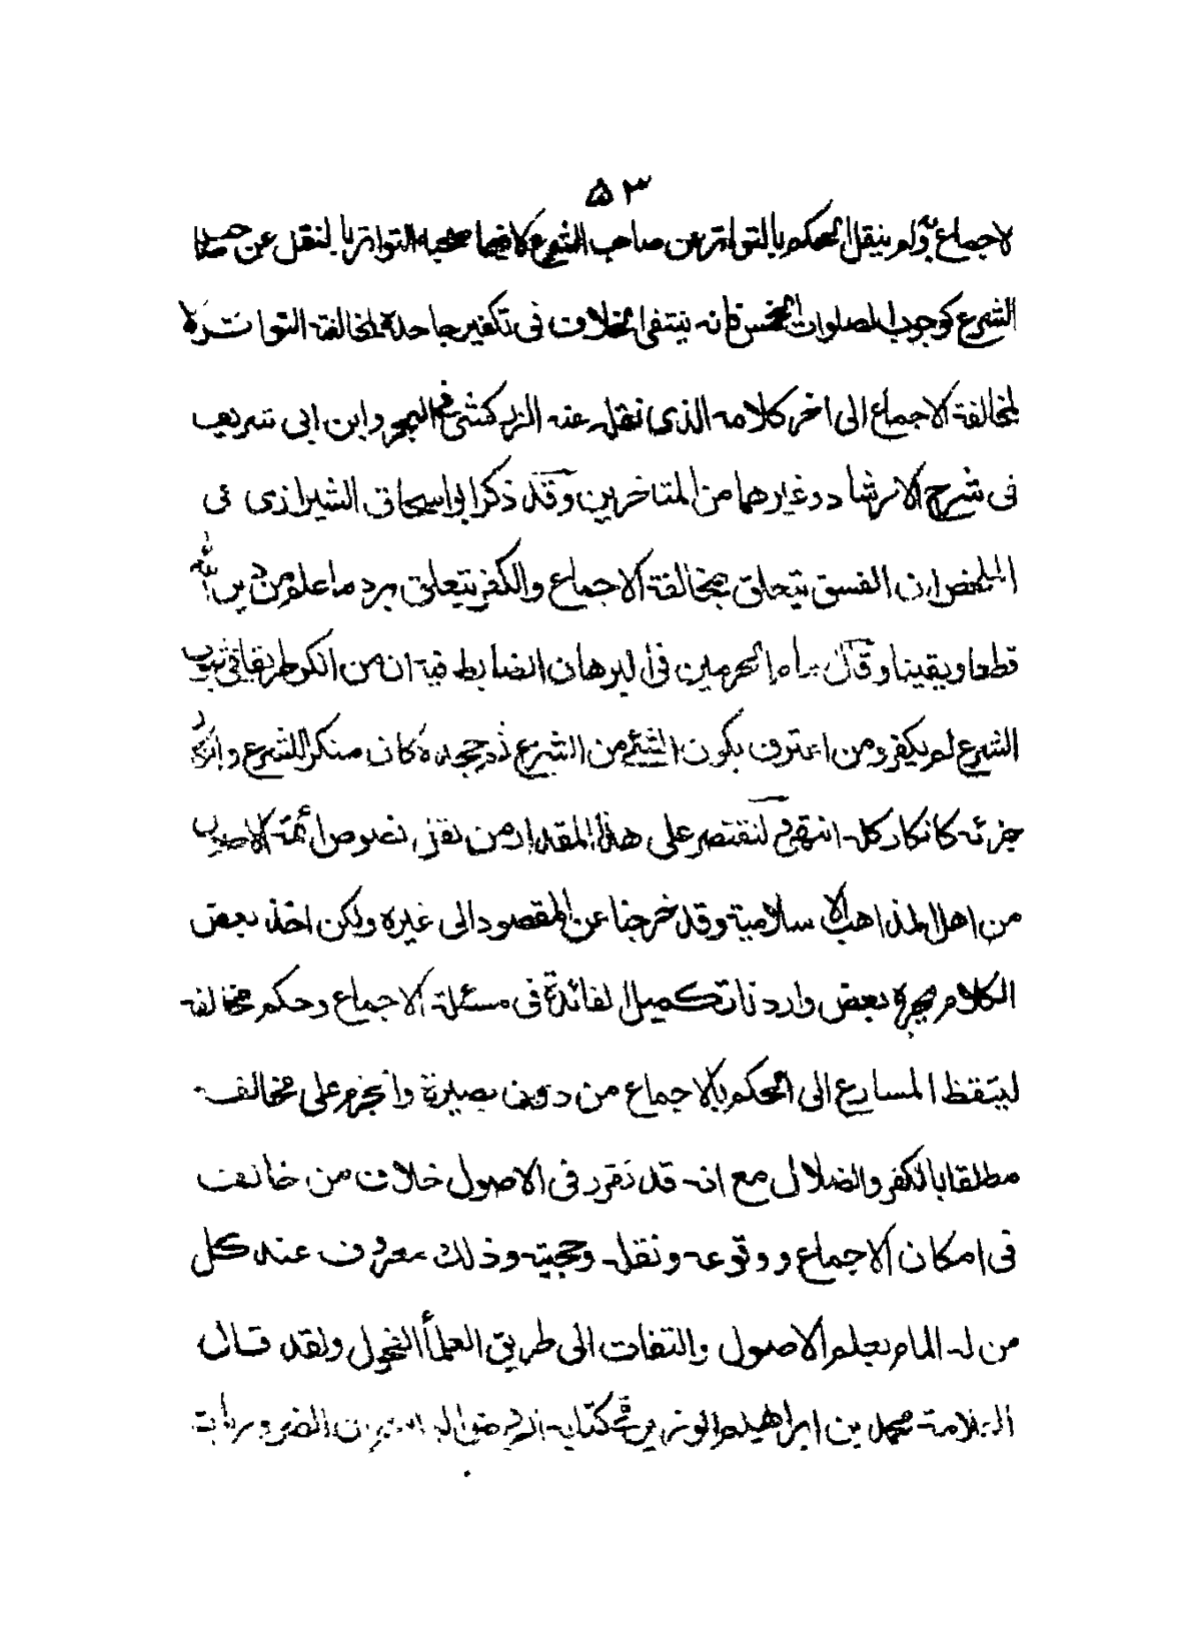 ٥٣
لاجماع ولم ينقل الحكم بالتواتر عن صاحب الشرع لا فيما صحبه التواتر بالنقل عن صاحب
الشرع كوجوب الصلوات الخمس فانه ينتفى الخلاف فى تكفير جاحده لمخالفته التواتر لا
لمخالفة الاجماع الى اخر كلامه الذى نقله عنه الزركشى فى البحر وابن ابى شريف
فى شرح الارشاد وغيرهما من المتاخرين وقد ذكر ابو اسحاق الشيرازى فى
الملخص ان الفسق يتعلق بمخالفة الاجماع والكفر يتعلق برد ما علم من دين الله
قطعا ويقينا وقال امام الحرمين فى البرهان الضابط فيه ان من انكر طريقا فى ثبوت
الشرع لم يكفر ومن اعترف بكون الشئ من الشرع ثم جحده كان منكرا للشرع وانكار
جزئه كانكار كله انتهى ولنقتصر على هذا المقدار من نقل نصوص ائمة الاصول
من اهل المذاهب الاسلامية وقد خرجنا عن المقصود الى غيره ولكن اخذ بعض
الكلام بحجزة بعض واردنا تكميل الفائدة فى مسئلة الاجماع وحكم مخالفه
ليتيقظ المسارع الى الحكم بالاجماع من دون بصيرة والجزم على مخالفه
مطلقا بالكفر والضلال مع انه قد تقرر فى الاصول خلاف من خالف
فى امكان الاجماع ووقوعه ونقله وحجيته وذلك معروف عند كل
من له المام بعلم الاصول والتفات الى طريق العلمأ الفحول ولقد قال
العلامة محمد بن ابراهيم الوزير فى كتابه ان الضرورة